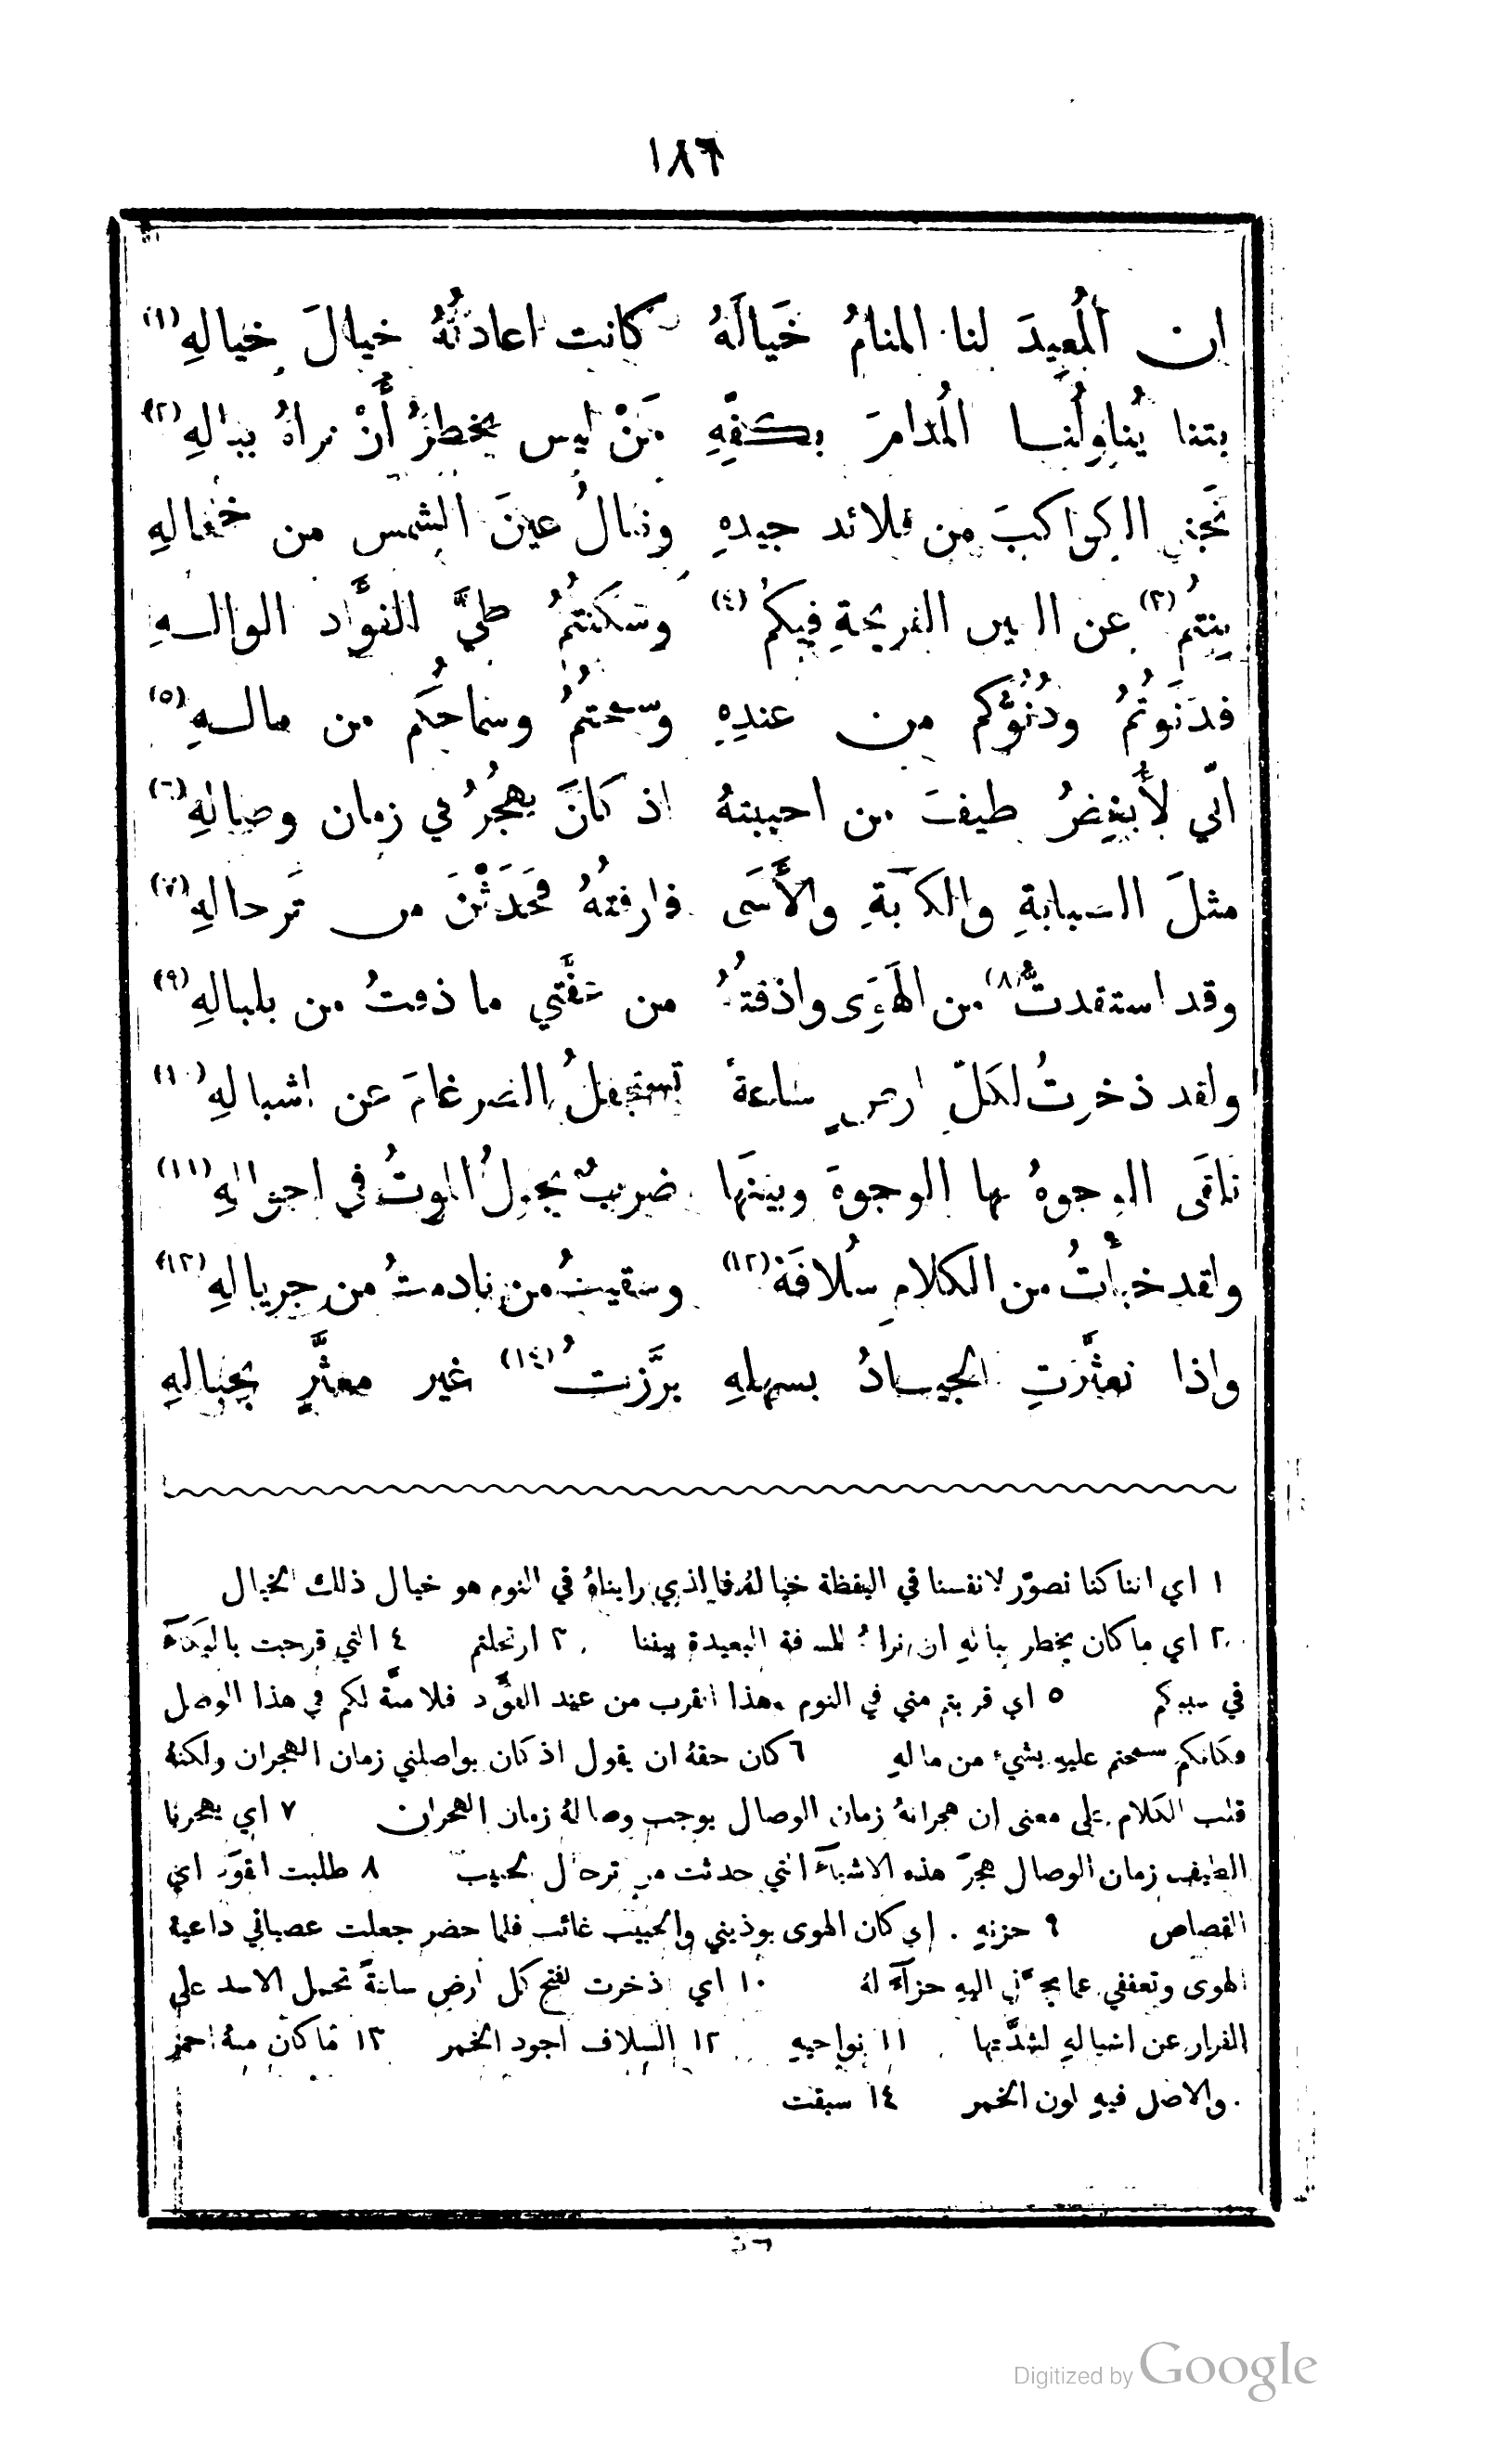 ١٨٦
ان المُعِيدَ لنا المنامُ خَيالَهُ كانت اعادتُهُ خيالَ خيالهِ (١)
بتنا يُناوِلُنا المُدامَ بكفّهِ مَنْ ليس يخطرُ أَنْ نراهُ ببالهِ (٢)
نَجني الكواكبَ من قلائد جيدهِ وننالُ عينَ الشمس من خلخالهِ
بِنتمُ (٣) عن العين القريحةِ فيكمُ (٤) وسَكَنتمُ طيَّ الفؤَّاد الوالهِ
فدَنَوتُمُ ودُنُوُّكم من عندِهِ وسمحتمُ وسماحُكم من مالهِ (٥)
انّي لأُبغِضُ طيفَ من احببتهُ اذ كانَ يهجُرُ في زمان وصالهِ (٦)
مثلَ الصبابةِ والكآبةِ والأَسَى فارقتُهُ فحَدَثْنَ من تَرحالهِ (٧)
وقد استقدتُّ (٨) من الهَوَى واذقتُهُ من عفَّتي ما ذقتُ من بلبالهِ (٩)
ولقد ذخرتُ لكلّ ارضٍ ساعةً تستجفلُ الضرغامَ عن اشبالهِ (١٠)
تلقَى الوجوهُ بها الوجوهَ وبينَها ضربٌ يجولُ الموتُ في احوالهِ (١١)
ولقد خبأْتُ من الكلامِ سُلافَهُ (١٢) وسقيتُ من نادمتُ من جريالهِ (١٣)
واذا تعثَّرَتِ الجيادُ بسهلهِ برَّزتُ (١٤) غير معثَّرٍ بجبالهِ
١ اي اننا كنا نصوّر لانفسنا في اليقظة خيالهُ فالذي رايناهُ في النوم هو خيال ذلك الخيال
٢ اي ما كان يخطر ببالهِ ان نراهُ للمسافة البعيدة بيننا ٣ ارتحلتم ٤ التي قرحت بالبكآء
في سبيلكم ٥ اي قربتم مني في النوم وهذا القرب من عند الفؤَّاد فلا منَّة لكم في هذا الوصل
فكانكم سمحتم عليهِ بشيء من مالهِ ٦ كان حقهُ ان يقول اذ كان يواصلني زمان الهجران ولكنهُ
قلب الكلام على معنى ان هجرانهُ زمان الوصال يوجب وصالهُ زمان الهجران ٧ اي يهجرنا
الطيف زمان الوصال هجرَ هذه الاشيآء التي حدثت من ترحال الحبيب ٨ طلبت القوَد اي
القصاص ٩ حزنهِ . اي كان الهوى يوذيني والحبيب غائب فلما حضر جعلت عصياني داعية
الهوى وتعففي عما يحثّني اليهِ جزآءً لهُ ١٠ اي ذخرت لفتح كل ارض ساعةً تحمل الاسد على
الفرار عن اشبالهِ لشدَّتها ١١ نواحيهِ ١٢ السلاف اجود الخمر ١٣ ما كان منهُ احمر
والاصل فيهِ لون الخمر ١٤ سبقت
Digitized by Google